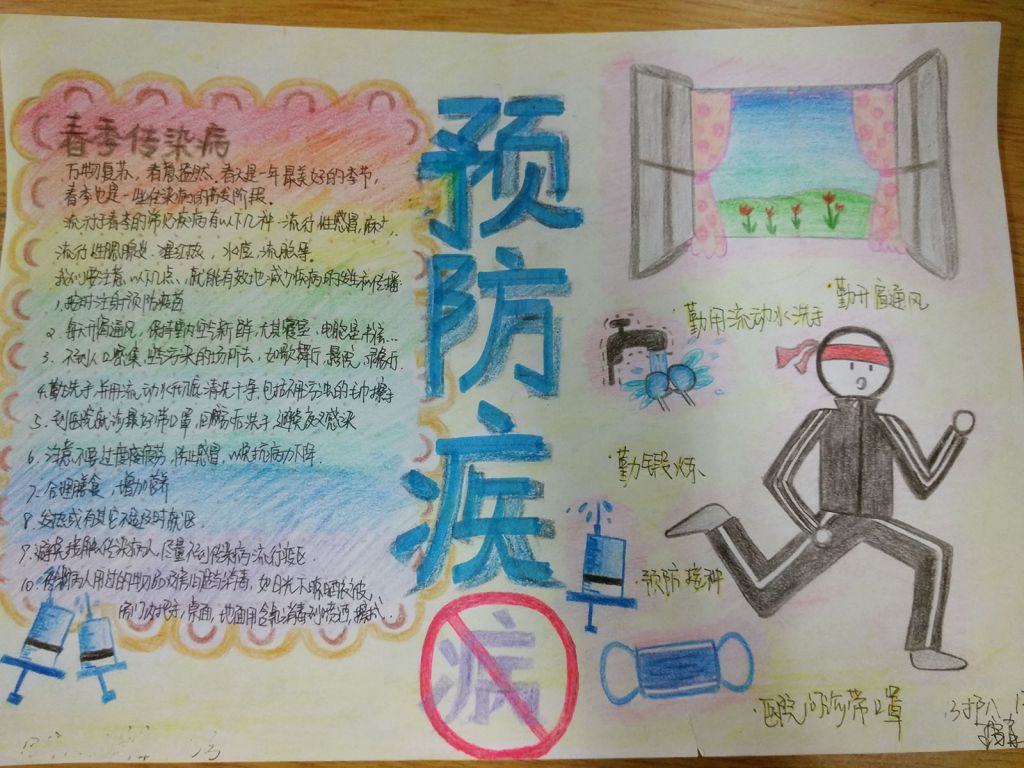 春季传染病
万物复苏、春意盎然、春天是一年最美好的季节,
春季也是一些传染病的高发阶段。
流行于春季的常见疾病有以下几种:流行性感冒,麻疹,
流行性腮腺炎、猩红热,水痘,流脑等。
我们要注意以下几点、就能有效地减少疾病的发生和传播:
1,按时注射预防疫苗
2、每天开窗通风,保持室内空气新鲜,尤其寝室、电脑室、教室…
3、不到人口密集、空气污染的场所去,如歌舞厅、影院、
4.勤洗手,并用流动水彻底清洗干净,包括不用污浊的毛巾擦手
5、到医院就诊最好带口罩,回后洗手,避免交叉感染
6、注意不要过度疲劳,防止感冒,以免抗病力下降.
7、合理膳食,增加营养
8、发热或有其它不适及时就医.
9、避免接触传染病人,尽量不到传染病流行疫区.
10.传染病人用过的物品及房间适当消毒,如日光下晾晒衣被,
房门把手,桌面,地面用含氯消毒剂喷洒、擦拭.
预
防
疾
病
·勤开窗通风
·勤用流动水洗手
·勤锻炼
·预防接种
·医院门诊带口罩